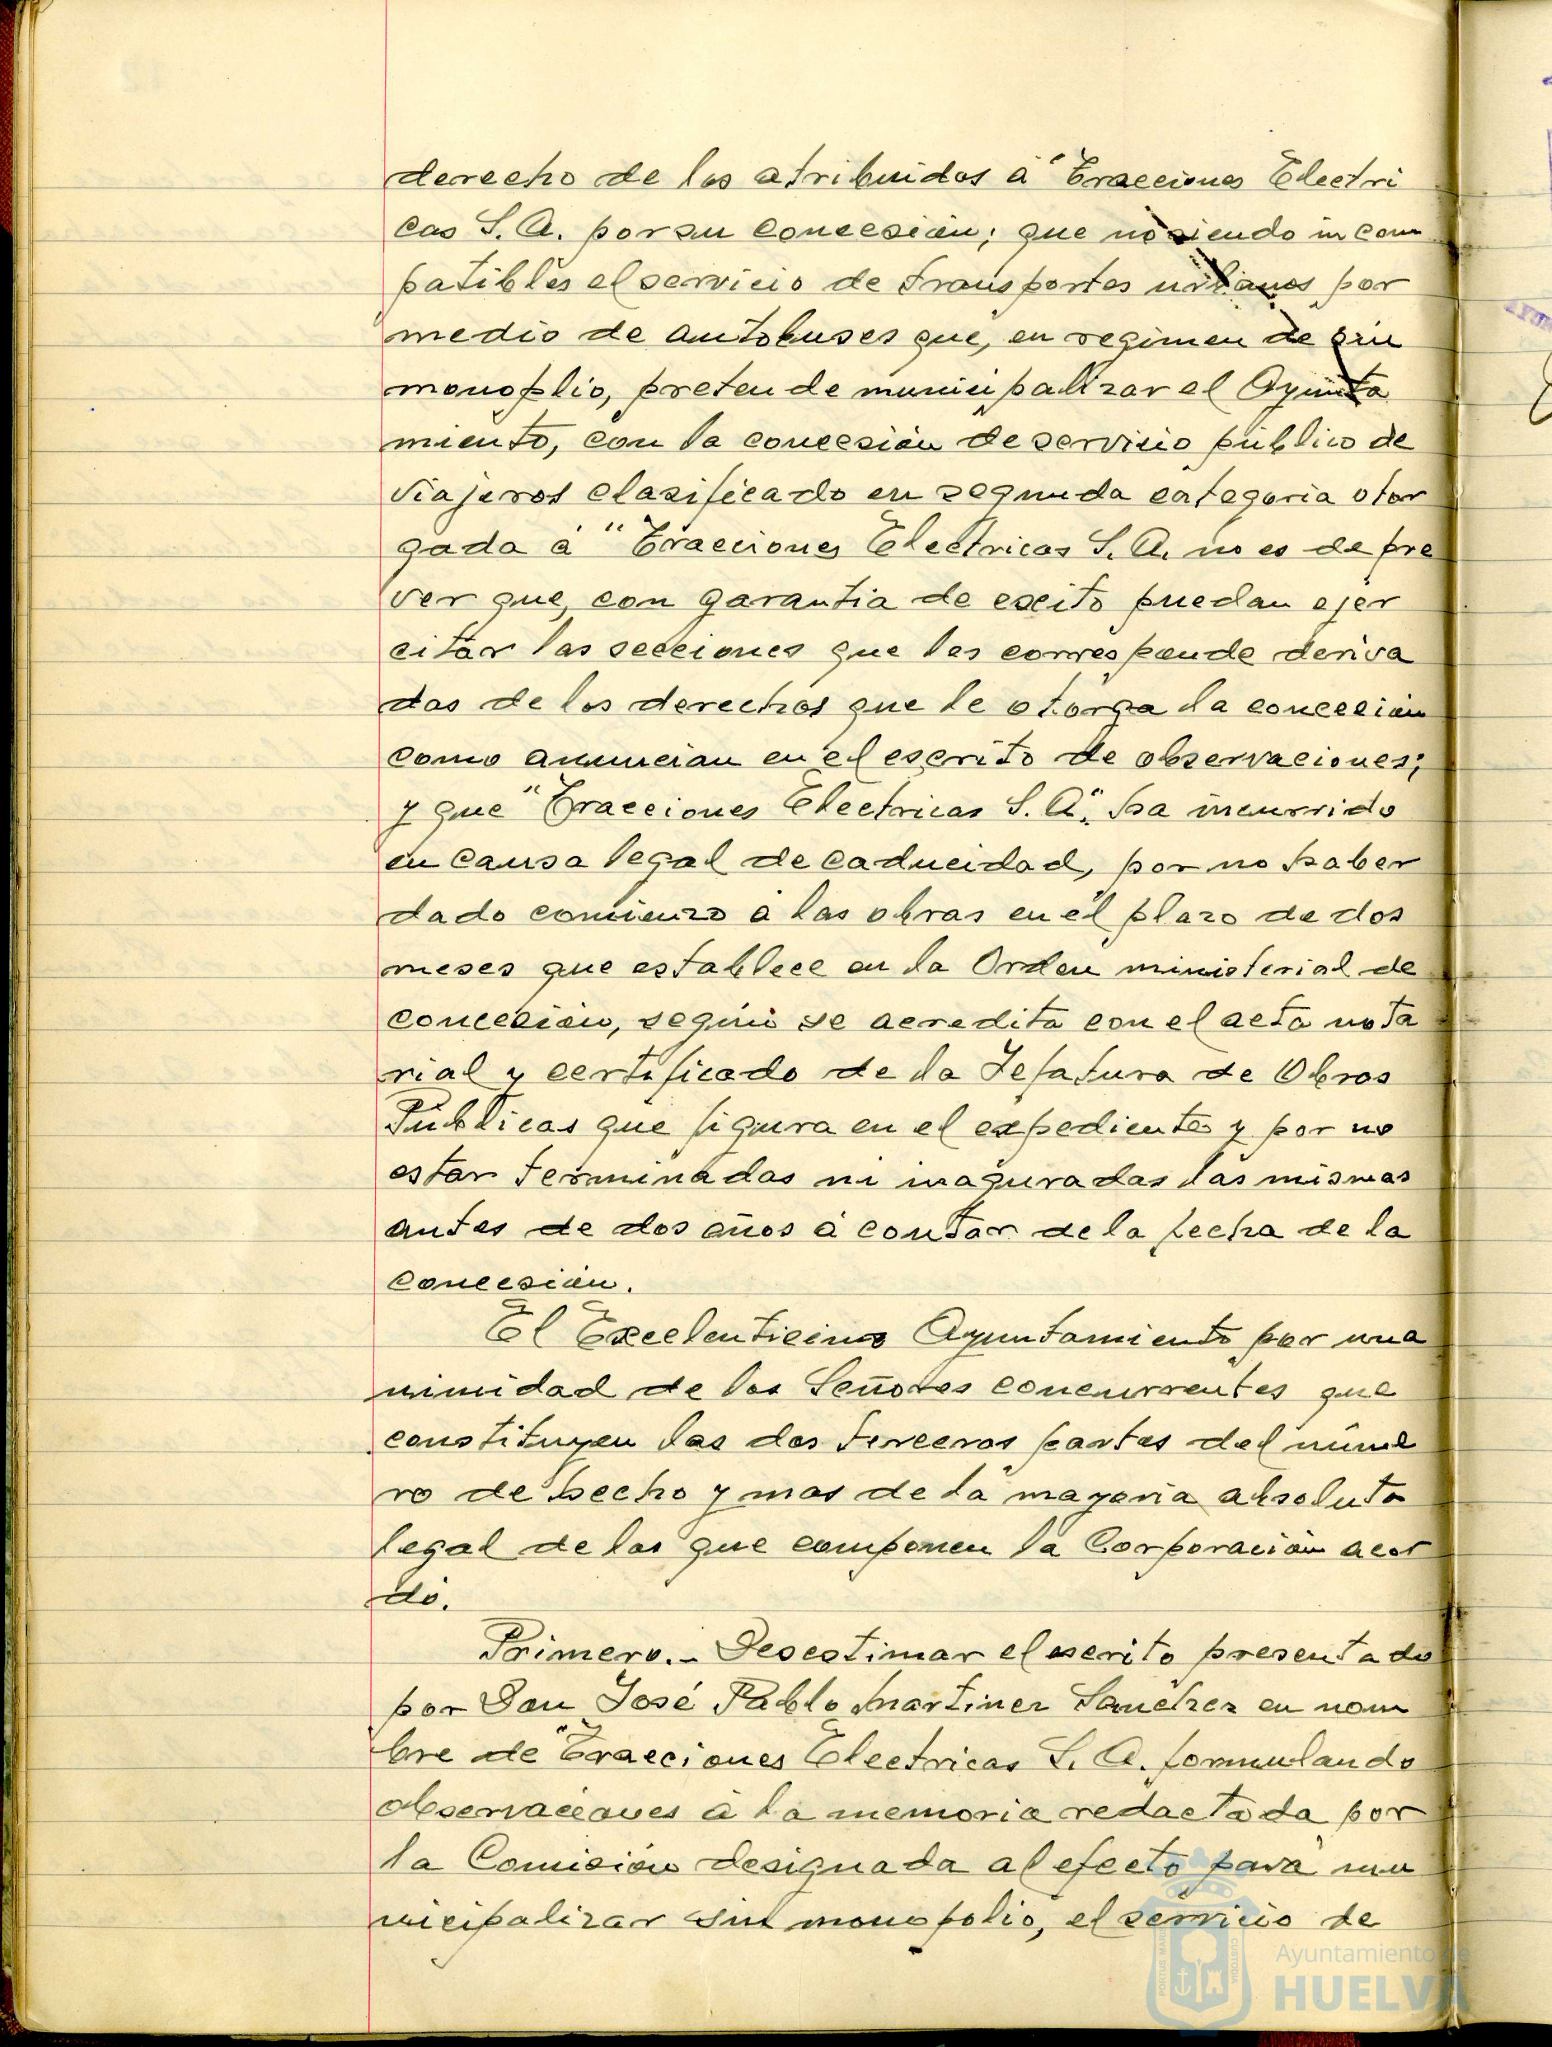 derecho de los atribuidos á "Tracciones Electri
cas S. A. por su concesión; que no siendo in com
patibles el servicio de transportes urbanos por
medio de autobuses que, en regimen de sin
monoplio, pretende municipalizar el Ayunta
miento, con la concesión de servicio público de
viajeros clasificado en segunda categoria otor
gada á "Tracciones Electricas S. A. no es de pre
ver que, con garantia de exito puedan ejer
citar las secciones que les corresponde deriva
das de los derechos que le otorga la concesión
como anuncian en el escrito de observaciones;
y que "Tracciones Electricas S. A." ha incurrido
en causa legal de caducidad, por no haber
dado comienzo á las obras en el plazo de dos
meses que establece en la Orden ministerial de
concesión, según se acredita con el acta nota
rial y certificado de la Jefatura de Obras
Públicas que figura en el expediente y por no
estar terminadas ni inaguradas las mismas
antes de dos años á contar de la fecha de la
concesión.
El Excelenticimo Ayuntamiento por una
nimidad de los Señores concurrentes que
constituyen las dos terceros partes del núme
ro de hecho y mas de la mayoria absoluta
legal de los que componen la Corporación acor
dó.
Primero.- Desestimar el escrito presentado
por Don José Pablo Martinez Sanchez en nom
bre de "Tracciones Electricas S. A. formulando
observaciones á la memoria redactada por
la Comisión designada al efecto para mu
nicipalizar sin monopolio, el servicio de
Ayuntamiento de
HUELVA
PORTUS MARIS
CUSTODIA